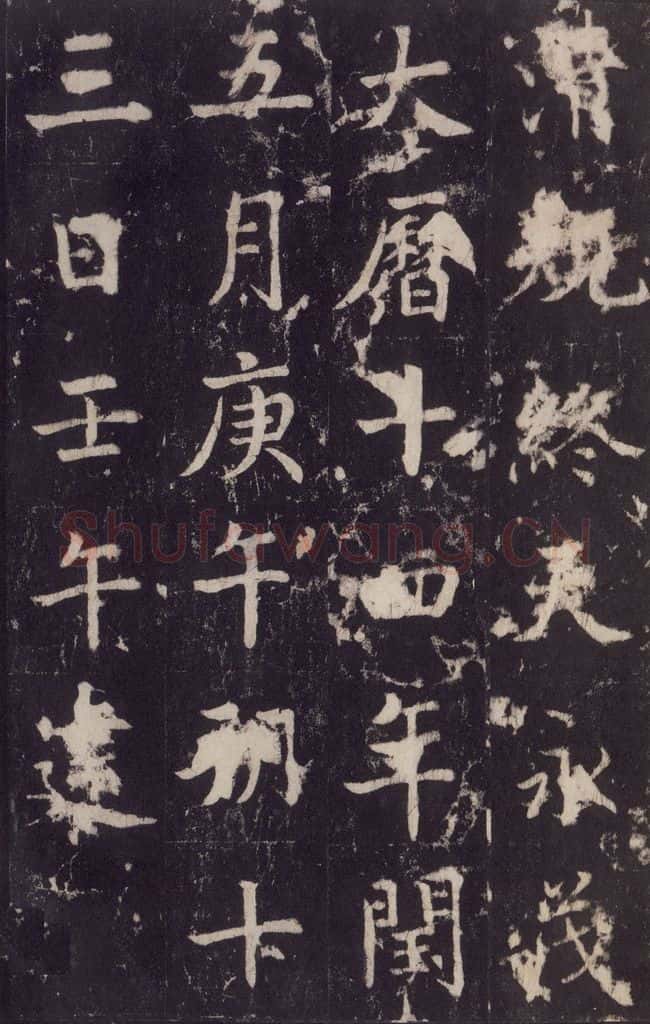 清規終天永茂
大曆十四年閏
五月庚午朔十
三日壬午建
Shufawang.CN